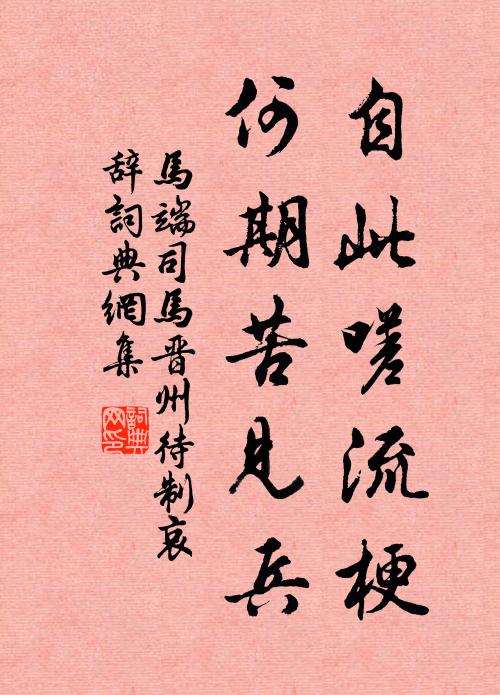 自此嗟流梗
何期苦見兵
馬端司馬晋州待制哀
辞詞典網集
詞典
网印